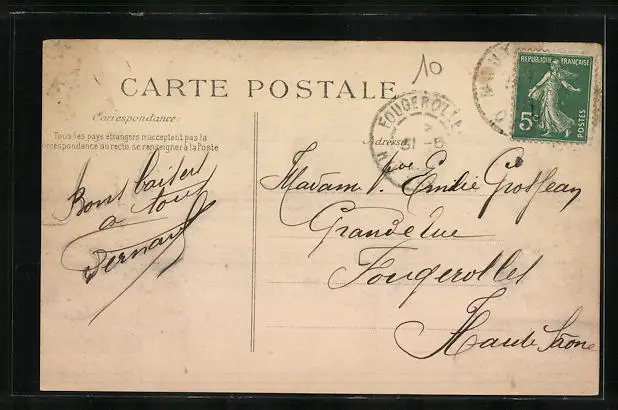 10
CARTE POSTALE
Correspondance:
Tous les pays étrangers n'acceptent pas la
correspondance au recto, se renseigner à la Poste
Adresse
FOUGEROLLE
31-5
REPUBLIQUE FRANÇAISE
5c
POSTES
Bons baisers
a tous
Bernard
Madame Vve Emilie Grosjean
Grande rue
Fougerolles
Haute Saone